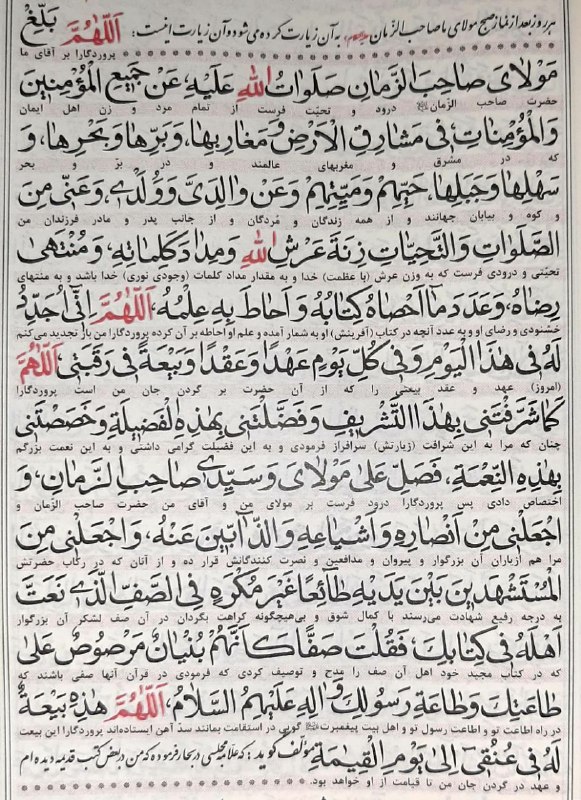 هر روز بعد از نماز صبح مولای ما صاحب الزّمان به آن زیارت کرده می شود و آن زیارت اینست: اَللّٰهُمَّ بَلِّغْ
پروردگارا بر آقای ما
مَوْلٰایَ صٰاحِبَ الزَّمٰانِ صَلَوٰاتُ اللّٰهِ عَلَیْهِ، عَنْ جَمیعِ الْمُؤْمِنینَ
حضرت صاحب الزمان درود و تحیّت فرست از تمام مرد و زن اهل ایمان
وَالْمُؤْمِنٰاتِ، فی مَشٰارِقِ الْاَرْضِ وَ مَغٰارِبِهٰا، وَبَرِّهٰا وَبَحْرِهٰا، وَ
که در مشرق و مغربهای عالمند و در برّ و بحر
سَهْلِهٰا وَجَبَلِهٰا، حَیِّهِمْ وَمَیِّتِهِمْ وَعَنْ وٰالِدَیَّ وَوُلْدی، وَعَنّی مِنَ
و کوه و بیابان جهانند و از همه زندگان و مُردگان و از جانب پدر و مادر فرزندان من
الصَّلَوٰاتِ وَالتَّحِیّٰاتِ زِنَةَ عَرْشِ اللّٰهِ وَمِدٰادَ کَلِمٰاتِهِ، وَمُنْتَهىٰ
تحیّتی و درودی فرست که به وزن عرش (با عظمت) خدا و به مقدار مداد کلمات (وجودی نوری) خدا باشد و به منتهای
رِضٰاهُ، وَعَدَدَ مٰا اَحْصٰاهُ کِتٰابُهُ وَ اَحٰاطَ بِهِ عِلْمُهُ، اَللّٰهُمَّ اِنّی اُجَدِّدُ
خشنودی و رضای او و به عدد آنچه در کتاب (آفرینش) او به شمار آمده و علم او احاطه بر آن کرده پروردگارا من باز تجدید می‌کنم
لَهُ فی هٰذَا الْیَوْمِ وَفی کُلِّ یَوْمٍ عَهْدًا وَعَقْدًا وَبَیْعَةً فی رَقَبَتی، اَللّٰهُمَّ
(امروز) عهد و عقد بیعتی را که از آن حضرت بر گردن جان من است پروردگارا
کَمٰا شَرَّفْتَنی بِهٰذَا التَّشْریفِ وَفَضَّلْتَنی بِهٰذِهِ الْفَضیلَةِ وَخَصَصْتَنی
چنان که مرا به این شرافت (زیارتش) سرافراز فرمودی و به این فضیلت گرامی داشتی و به این نعمت بزرگم
بِهٰذِهِ النِّعْمَةِ، فَصَلِّ عَلىٰ مَوْلٰایَ وَسَیِّدی صٰاحِبِ الزَّمٰانِ، وَ
اختصاص دادی پس پروردگارا درود فرست بر مولای من و آقای من حضرت صاحب الزمان و
اجْعَلْنی مِنْ اَنْصٰارِهِ وَاَشْیٰاعِهِ وَالذّٰابّینَ عَنْهُ، وَاجْعَلْنی مِنَ
مرا هم ازیاران آن بزرگوار و پیروان و مدافعین و نصرت کنندگانش قرار ده و از آنان که در رکاب حضرتش
الْمُسْتَشْهَدینَ بَیْنَ یَدَیْهِ طٰائِعًا غَیْرَ مُکْرَهٍ فِی الصَّفِّ الَّذی نَعَتَّ
به درجه رفیع شهادت می‌رسند با کمال شوق و بی‌هیچگونه کراهت بگردان در آن صف لشکر آن بزرگوار
اَهْلَهُ فی کِتٰابِکَ، فَقُلْتَ صَفًّا کَاَنَّهُمْ بُنْیٰانٌ مَرْصُوصٌ عَلىٰ
که در کتاب مجید خود اهل آن صف را مدح و توصیف کردی که فرمودی در قرآن آنها صفی باشند که
طٰاعَتِکَ وَطٰاعَةِ رَسُولِکَ وَ اٰلِهِ عَلَیْهِمُ السَّلٰامُ، اَللّٰهُمَّ هٰذِهِ بَیْعَةٌ
در راه اطاعت تو و اطاعت رسول تو و اهل بیت پیغمبرت گویی در استقامت بمانند سدّ آهن ایستاده‌اند پروردگارا این بیعت
لَهُ فی عُنُقی اِلىٰ یَوْمِ الْقِیٰمَةِ مؤلف گوید: که علامه مجلسی در بحار فرموده که من در بعض کتب قدیمه دیده ام
و عهد در گردن جان من تا قیامت از او خواهد بود.